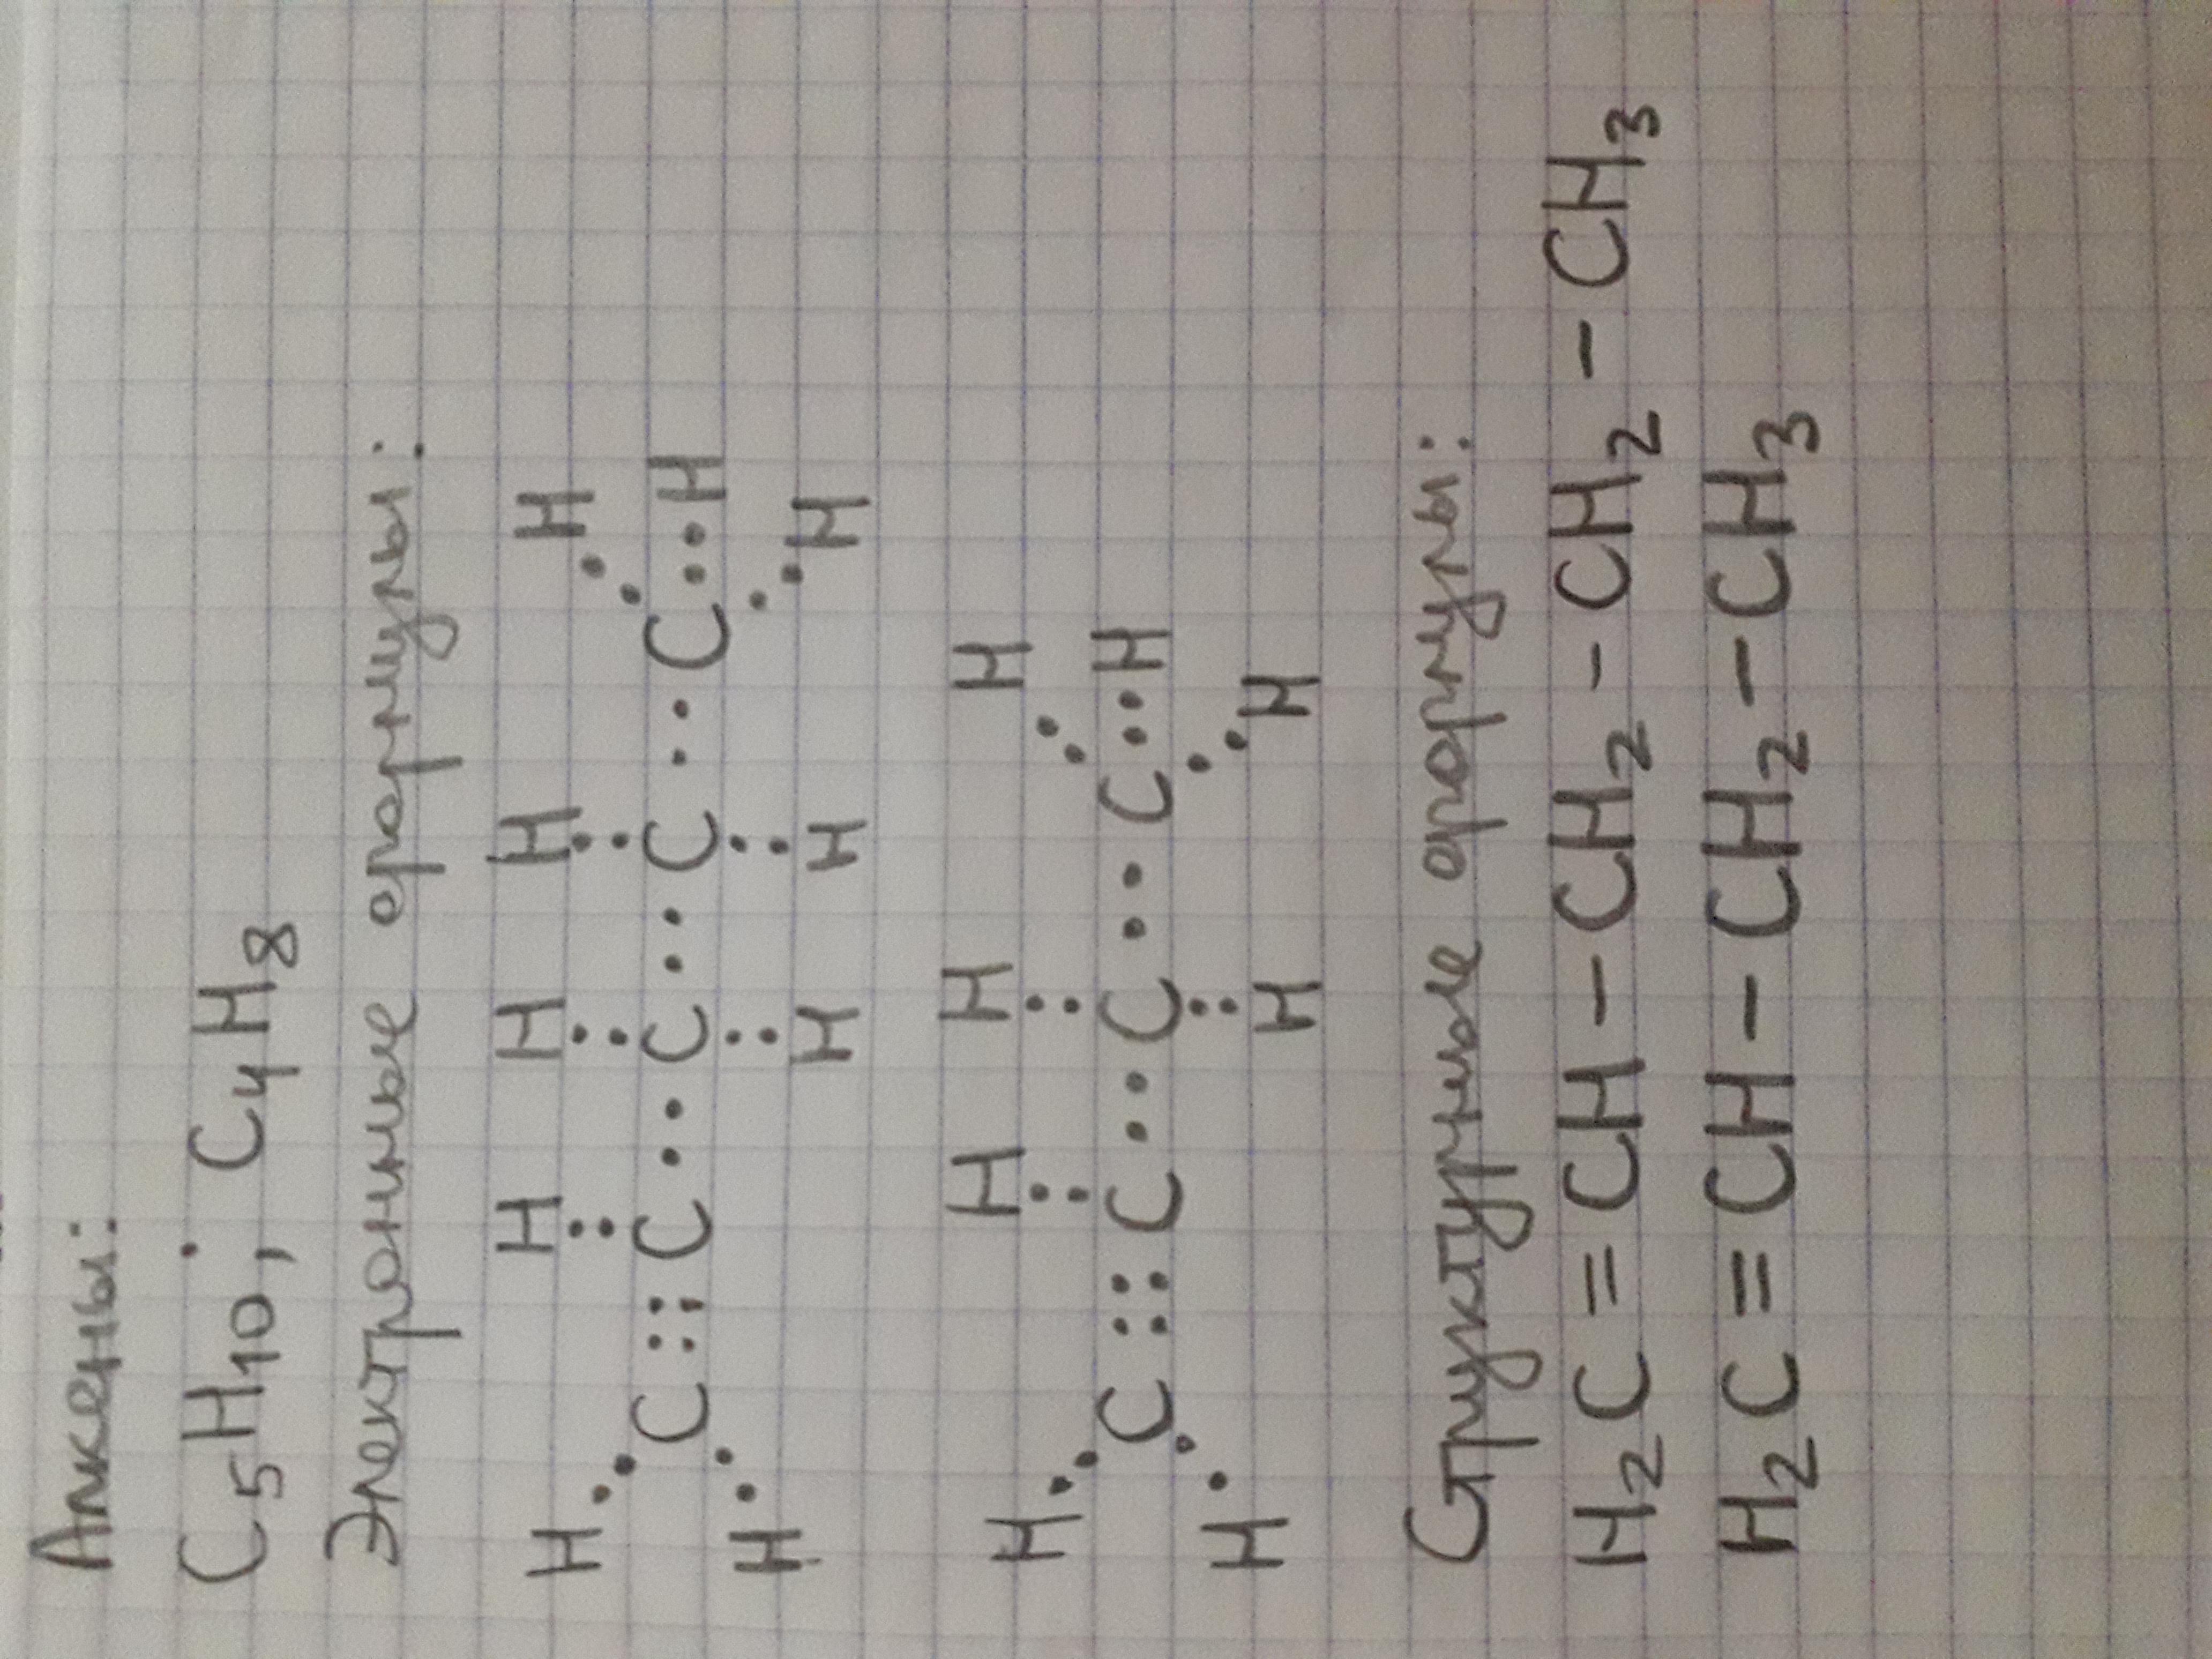 Алкены:
C₅H₁₀; C₄H₈
Электронные формулы:
H H H H H
C :: C : C : C : C : H
H H H H
H H H H
C :: C : C : C : H
H H H
Структурные формулы:
H₂C = CH – CH₂ – CH₂ – CH₃
H₂C = CH – CH₂ – CH₃